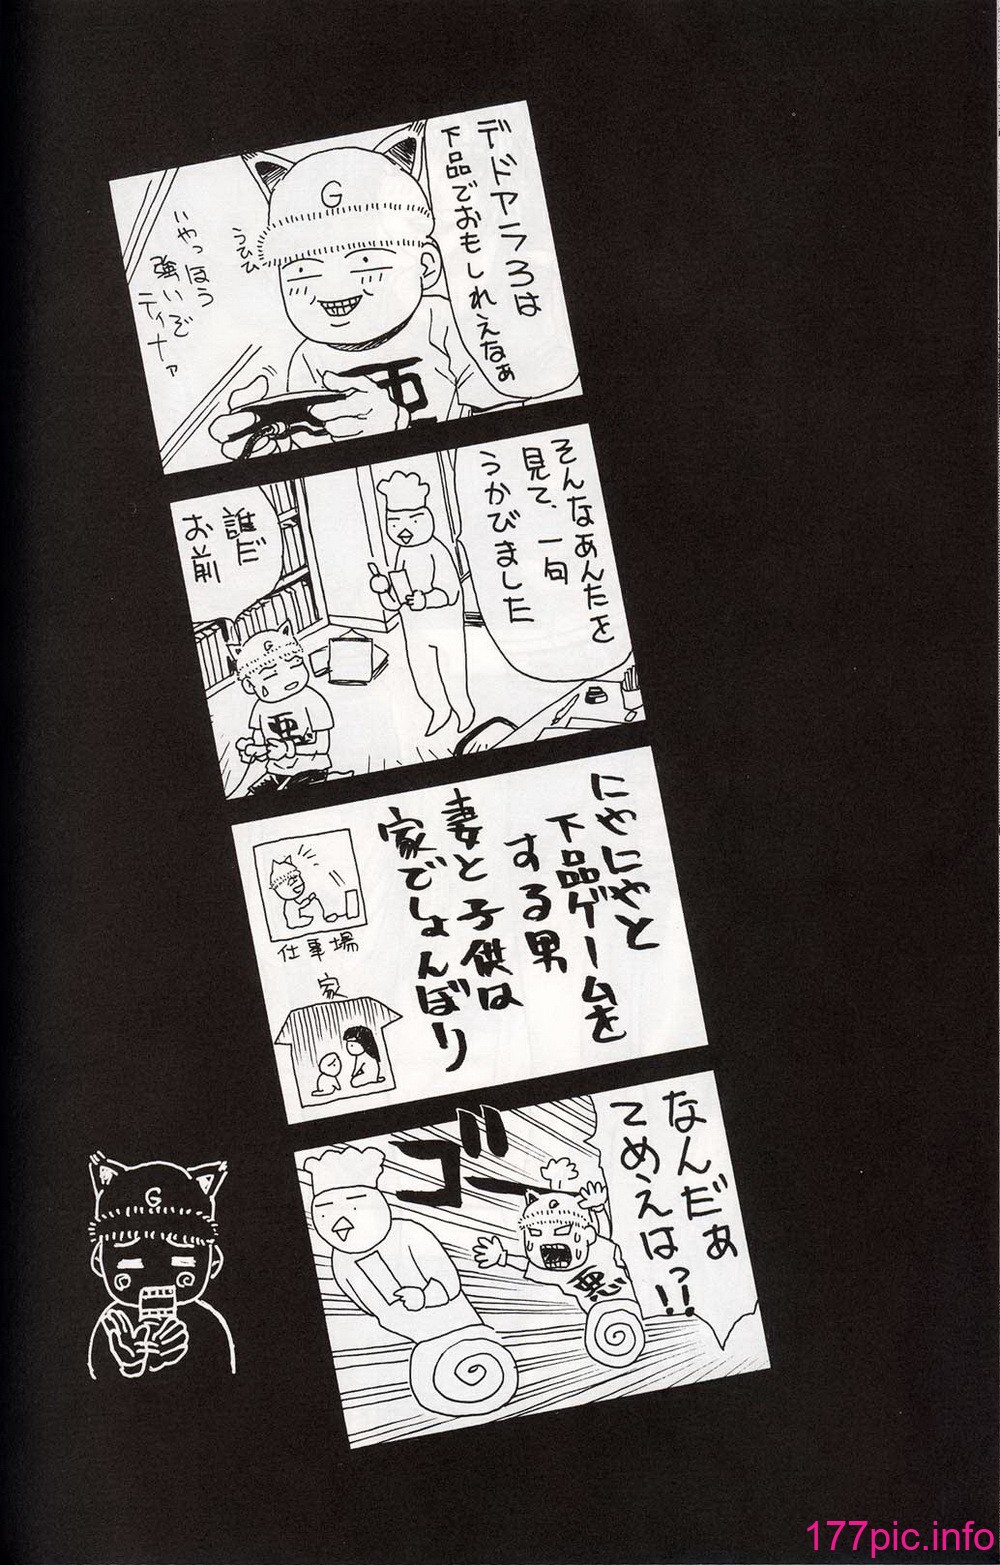 デドアラ3は
下品でおもしれえなぁ
G
うひひ
いやっほう
強いぞ
ティナァ
悪
そんなあんたを
見て、一句
うかびました
誰だ
お前
G
悪
にやにやと
下品ゲームを
する男
妻と子供は
家でしょんぼり
仕事場
家
なんだぁ
てめえはっ!!
ゴー
G
悪
G
177pic.info